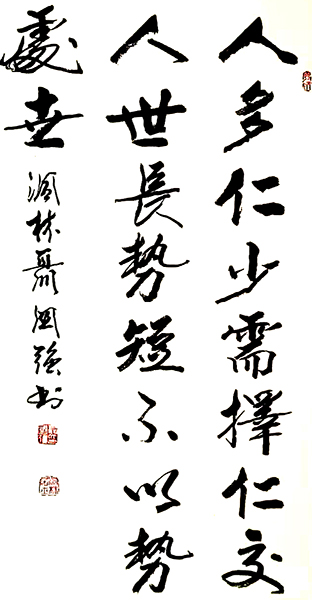 人多仁少需擇仁交
人世長勢短不以勢
處世 林聶國強书